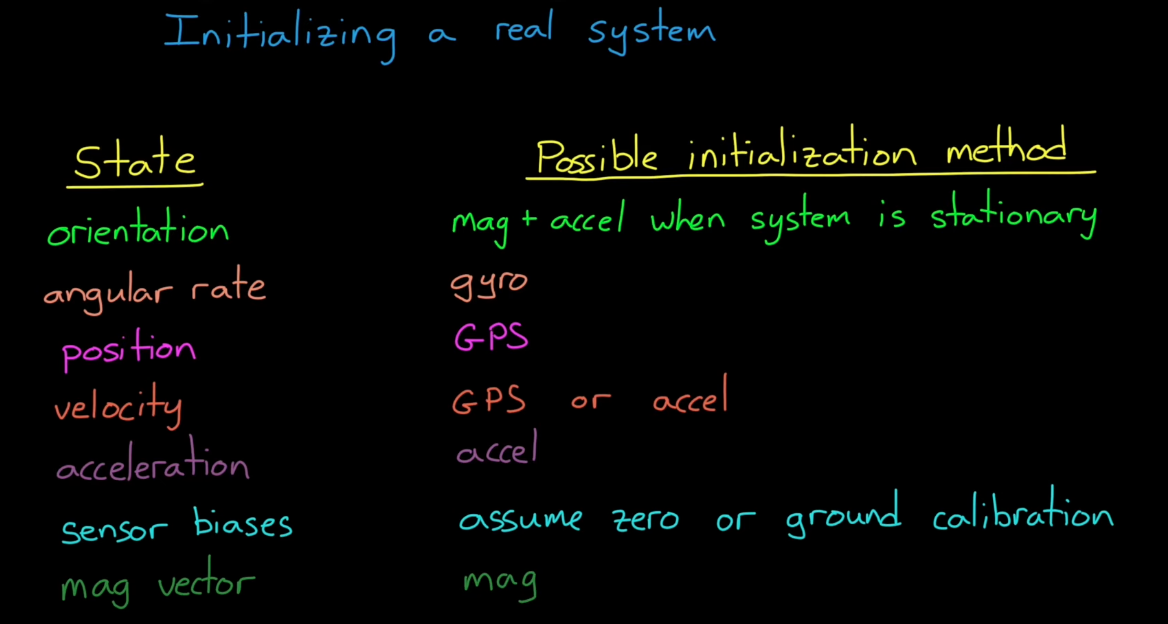 Initializing a real system
State Possible initialization method
orientation mag + accel when system is stationary
angular rate gyro
position GPS
velocity GPS or accel
acceleration accel
sensor biases assume zero or ground calibration
mag vector mag